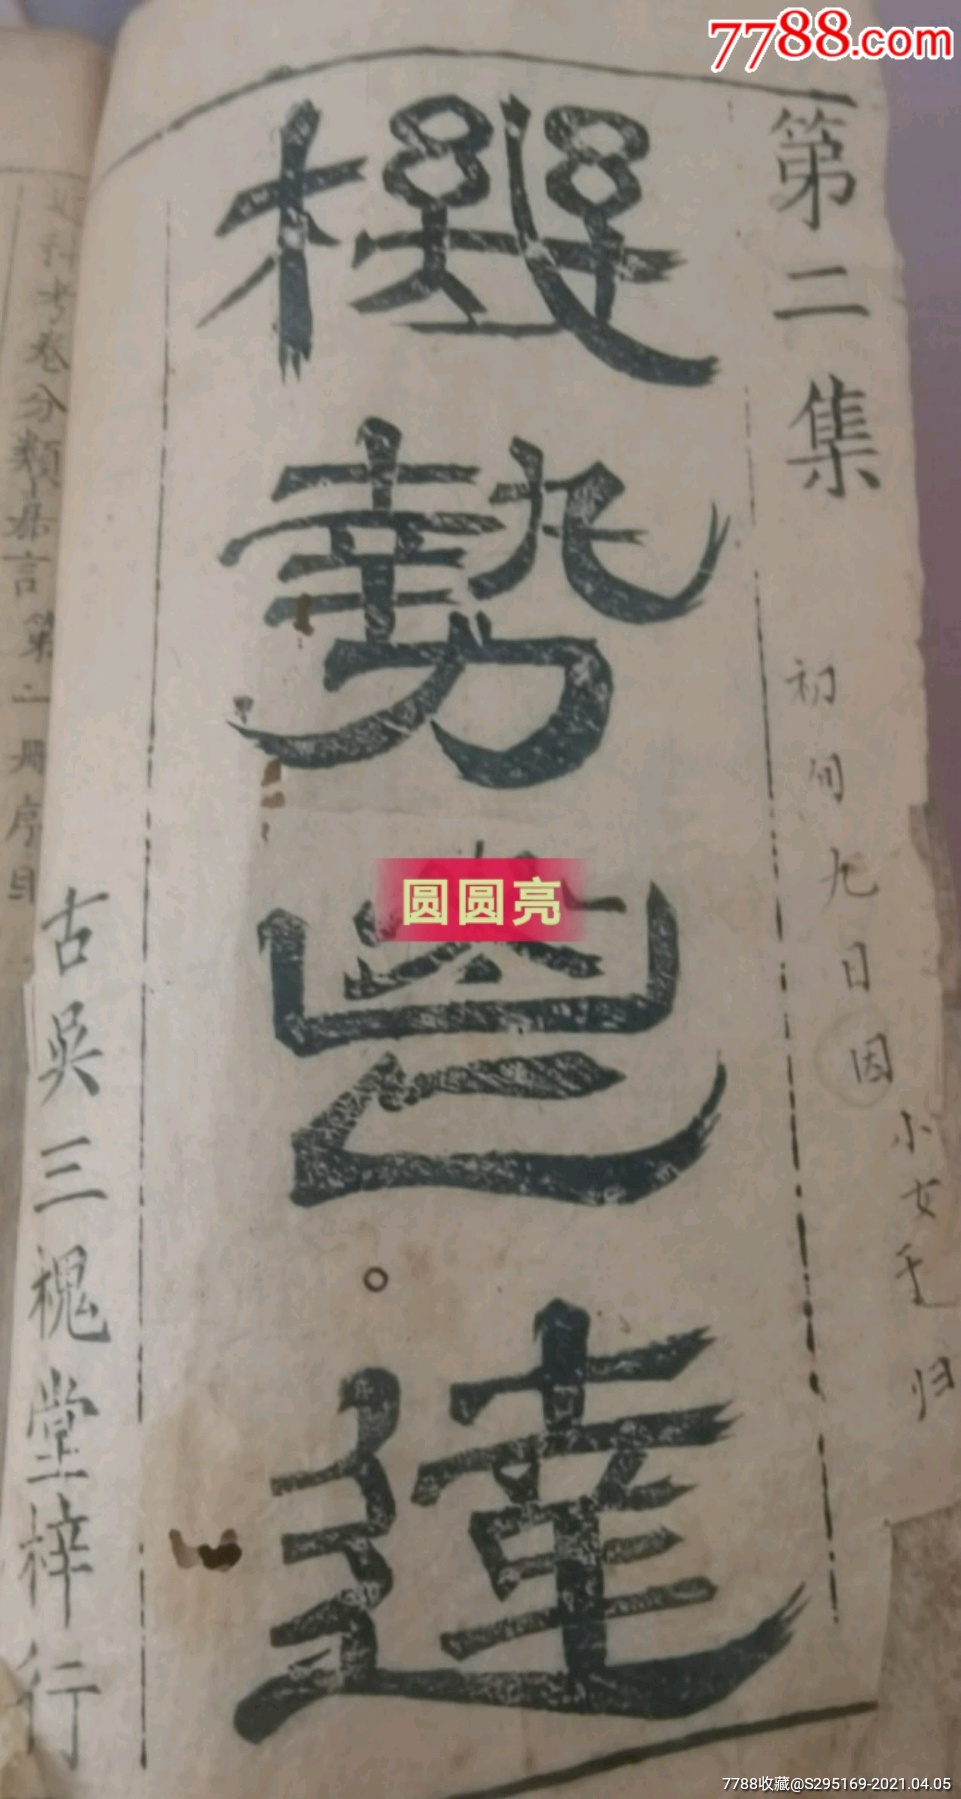 7788.com
第二集
機勢
達
古吳三槐堂梓行
初旬九日因
小女
归
考卷分類
言第一冊序目
圆圆亮
7788收藏@S295169-2021.04.05